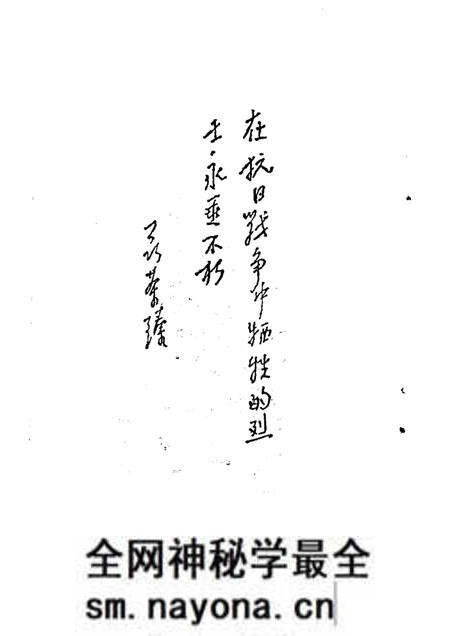 在抗日战争中牺牲的烈
士永垂不朽
聂荣臻
全网神秘学最全
sm.nayona.cn